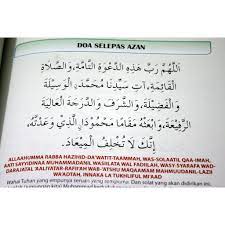 DOA SELEPAS AZAN
اَللّٰهُمَّ رَبَّ هٰذِهِ الدَّعْوَةِ التَّامَّةِ، وَالصَّلَاةِ
الْقَائِمَةِ، آتِ سَيِّدَنَا مُحَمَّدَ، الْوَسِيْلَةَ
وَالْفَضِيْلَةَ، وَالشَّرَفَ وَالدَّرَجَةَ الْعَالِيَةَ
الرَّفِيْعَةَ، وَابْعَثْهُ مَقَامًا مَحْمُوْدَ الَّذِيْ وَعَدْتَهُ،
إِنَّكَ لَا تُخْلِفُ الْمِيْعَادَ.
ALLAAHUMMA RABBA HAZIHID-DA'WATIT-TAAMMAH, WAS-SOLAATIL QAA-IMAH,
AATI SAYYIDINAA MUHAMMADANIL WASIILATA WAL FADIILAH, WASY-SYARAFA WAD-
DARAJATAL 'AALIYATAR-RAFII'AH WAB-'ATSHU MAQAAMAM MAHMUUDANIL-LAZII
WA'ADTAH, INNAKA LA TUKHLIFUL MI'AAD
Wahai Tuhan yang empunya seruan yang sempurna. Dan solat yang akan didirikan ini,